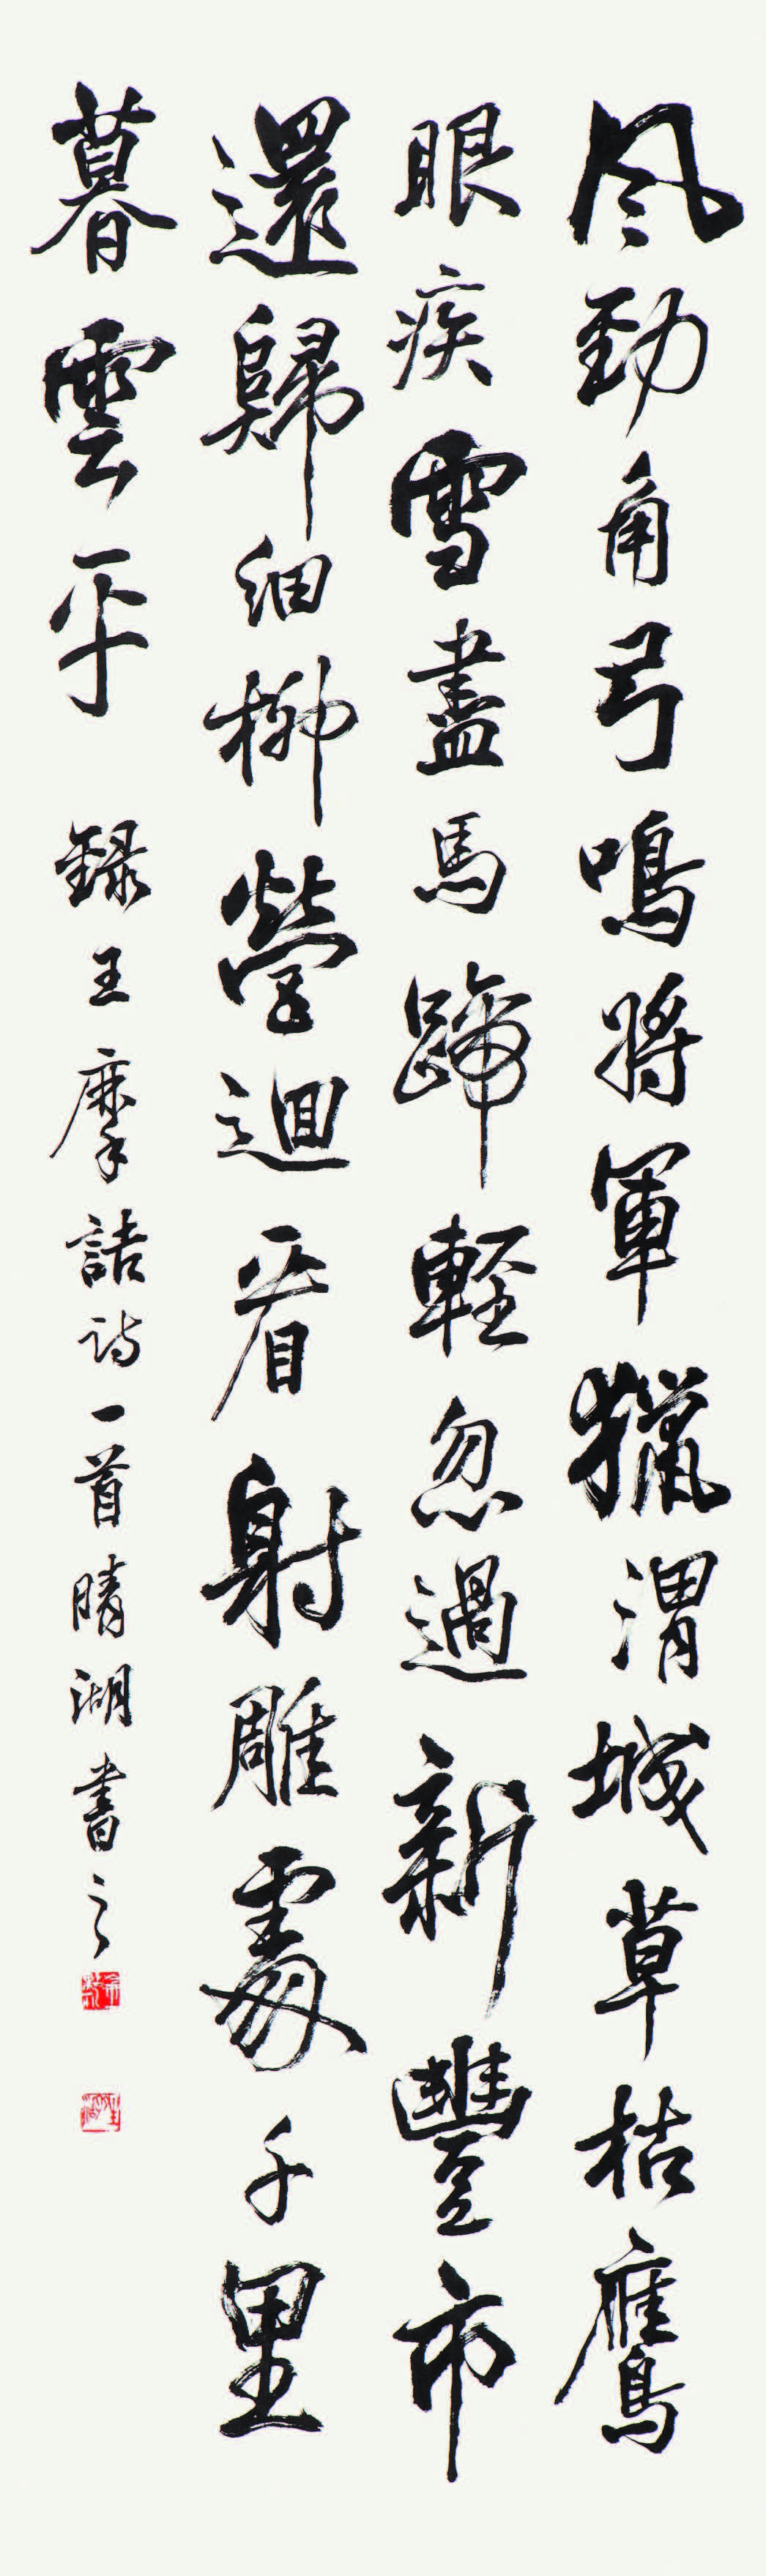 风劲角弓鳴將軍獵渭城草枯鷹
眼疾雪盡馬蹄輕忽過新豐市
還歸細柳營迴看射雕處千里
暮雲平 録王摩詰詩一首晴湖書之